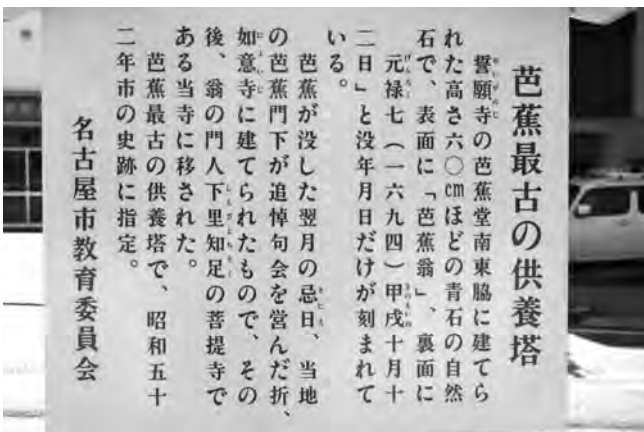 芭蕉最古の供養塔
誓願寺の芭蕉堂南東脇に建てら
れた高さ六〇cmほどの青石の自然
石で、表面に「芭蕉翁」、裏面に
元禄七(一六九四)甲戌十月十
二日」と没年月日だけが刻まれて
いる。
芭蕉が没した翌月の忌日、当地
の芭蕉門下が追悼句会を営んだ折、
如意寺に建てられたもので、その
後、翁の門人下里知足の菩提寺で
ある当寺に移された。
芭蕉最古の供養塔で、昭和五十
二年市の史跡に指定。
名古屋市教育委員会